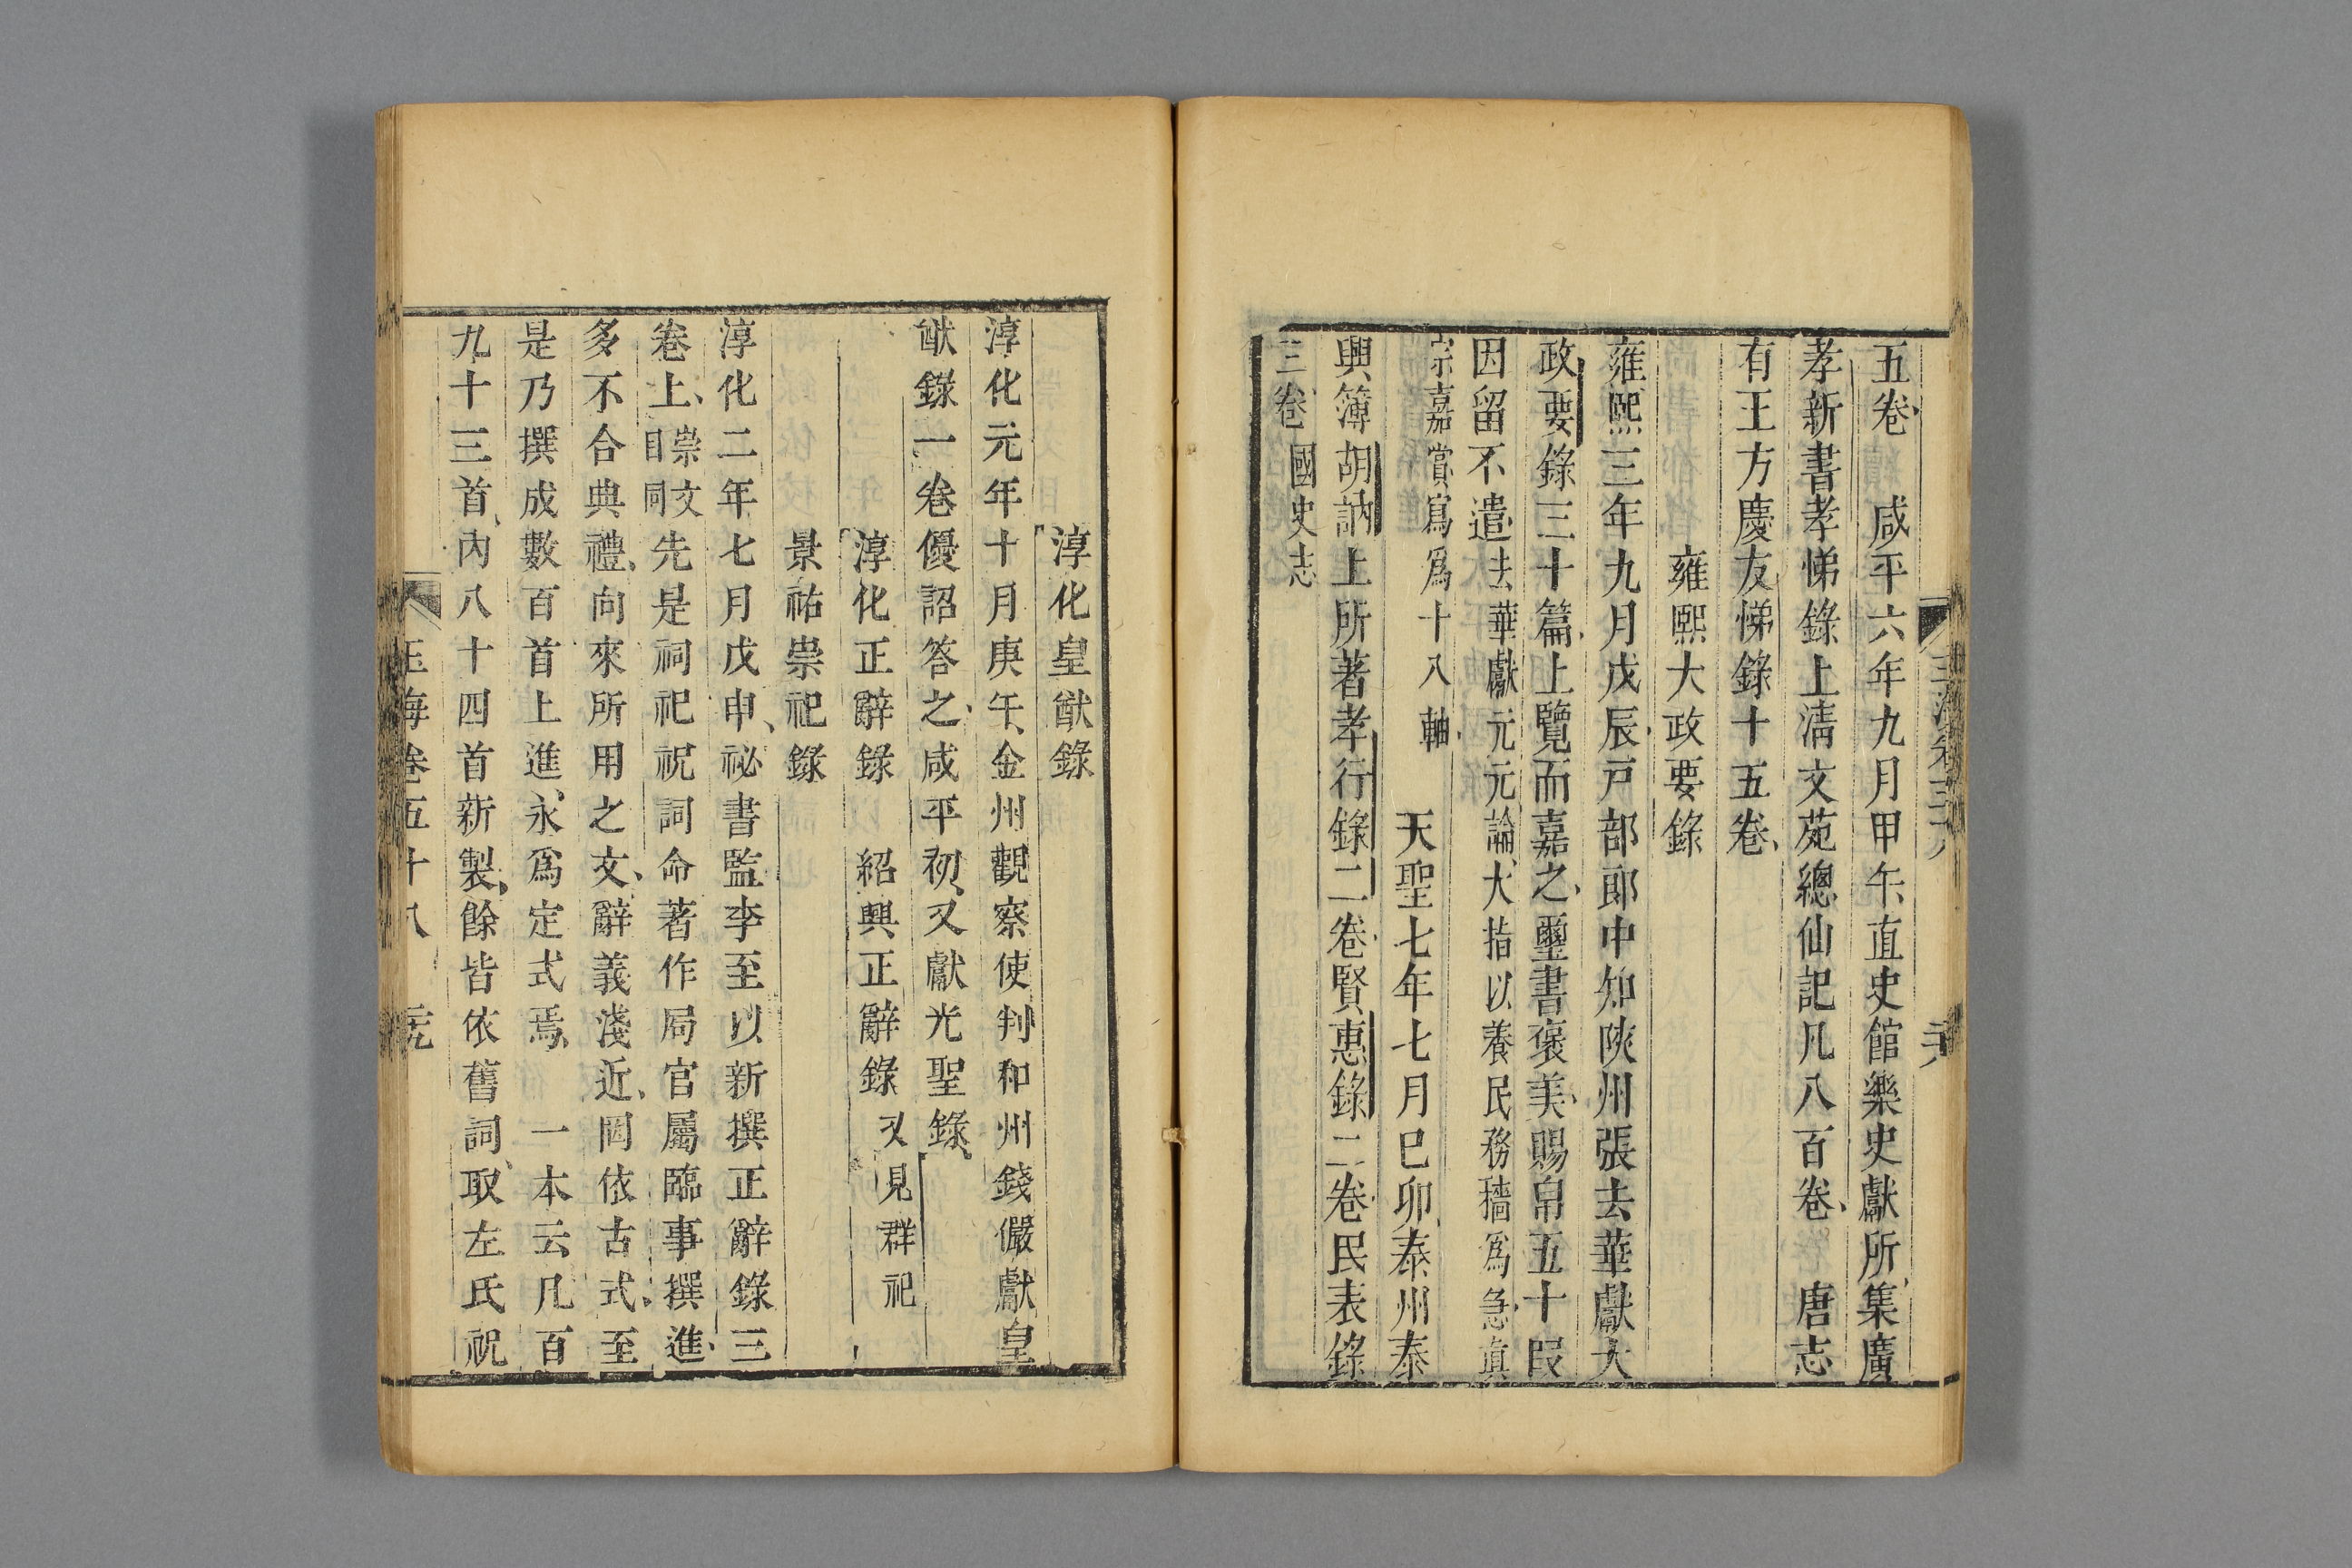 五卷 咸平六年九月甲午直史館樂史獻所集廣
孝新書孝悌錄上清文苑總仙記凡八百卷 唐志
有王方慶友悌錄十五卷
雍熙大政要錄
雍熙三年九月戊辰戸部郎中知陝州張去華獻大
政要錄三十篇上覽而嘉之璽書褒美賜帛五十段
因留不遣去華獻元元論大指以養民務穡爲急真
宗嘉賞寫爲十八軸
天聖七年七月巳卯泰州泰
興簿胡訥上所著孝行錄二卷賢惠錄二卷民表錄
三卷國史志
淳化皇猷錄
淳化元年十月庚午金州觀察使判和州錢儼獻皇
猷錄一卷優詔答之咸平初又獻光聖錄
淳化正辭錄 紹興正辭錄 又見群祀
景祐崇祀錄
淳化二年七月戊申祕書監李至以新撰正辭錄三
卷上崇文目同先是祠祀祝詞命著作局官屬臨事撰進
多不合典禮向來所用之文辭義淺近罔依古式至
是乃撰成數百首上進永爲定式焉 一本云凡百
九十三首內八十四首新製餘皆依舊詞取左氏祝
玉海卷五十八